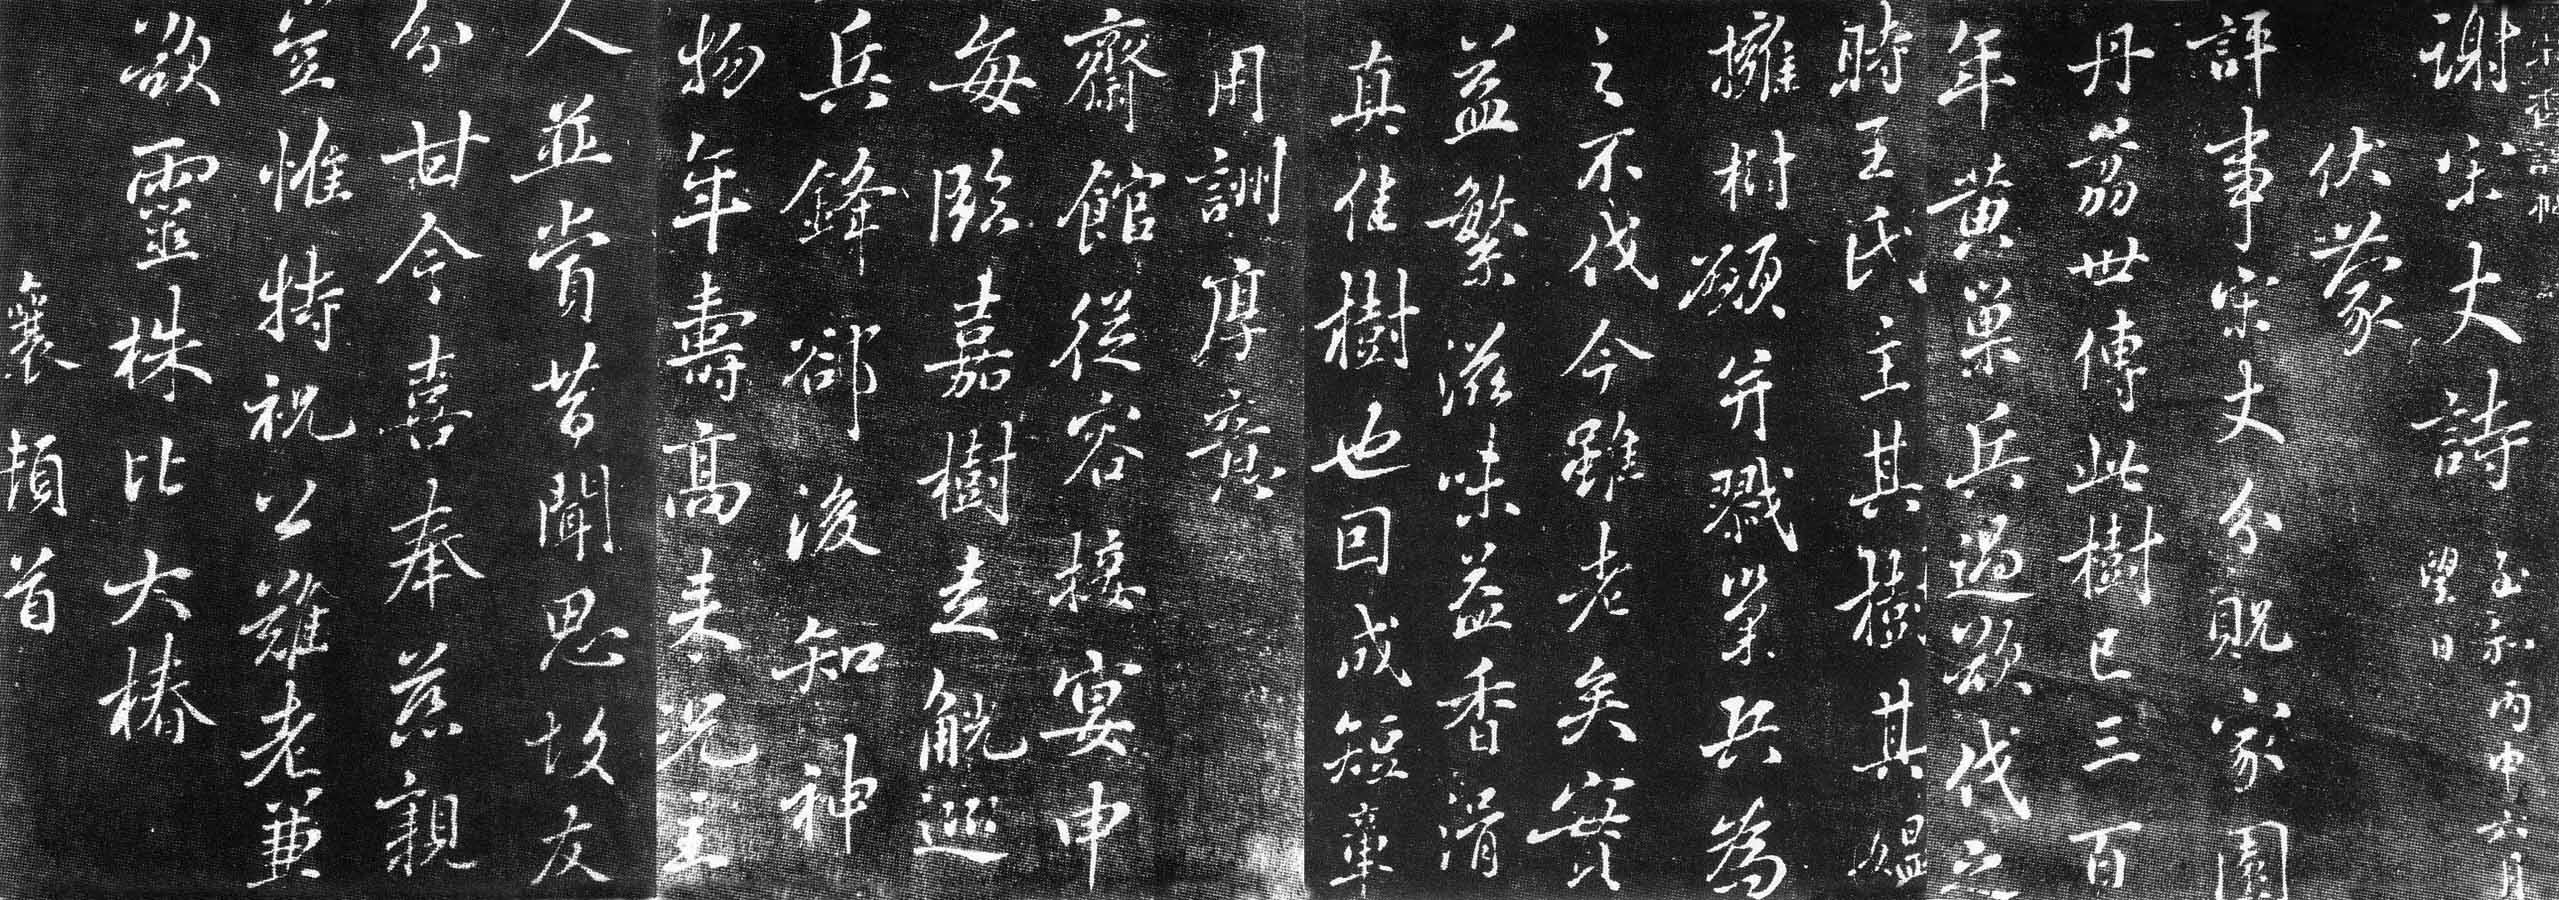 謝宋丈詩
至和丙申六月
望日
伏蒙
評事宋丈分貺家園
丹荔世傳此樹已三百
年黃巢兵過欲伐之
時王氏主其樹其媼
擁樹願并戮巢兵為
之不伐今雖老矣實
益繁滋味益香滑
真佳樹也因成短章
用詶厚意
齋館從容接宴申
每臨嘉樹走觥巡
兵鋒卻後知神
物年壽高來況主
人並賞昔聞思故友
分甘今喜奉慈親
豈惟特祝公難老兼
欲靈株比大椿
襄頓首